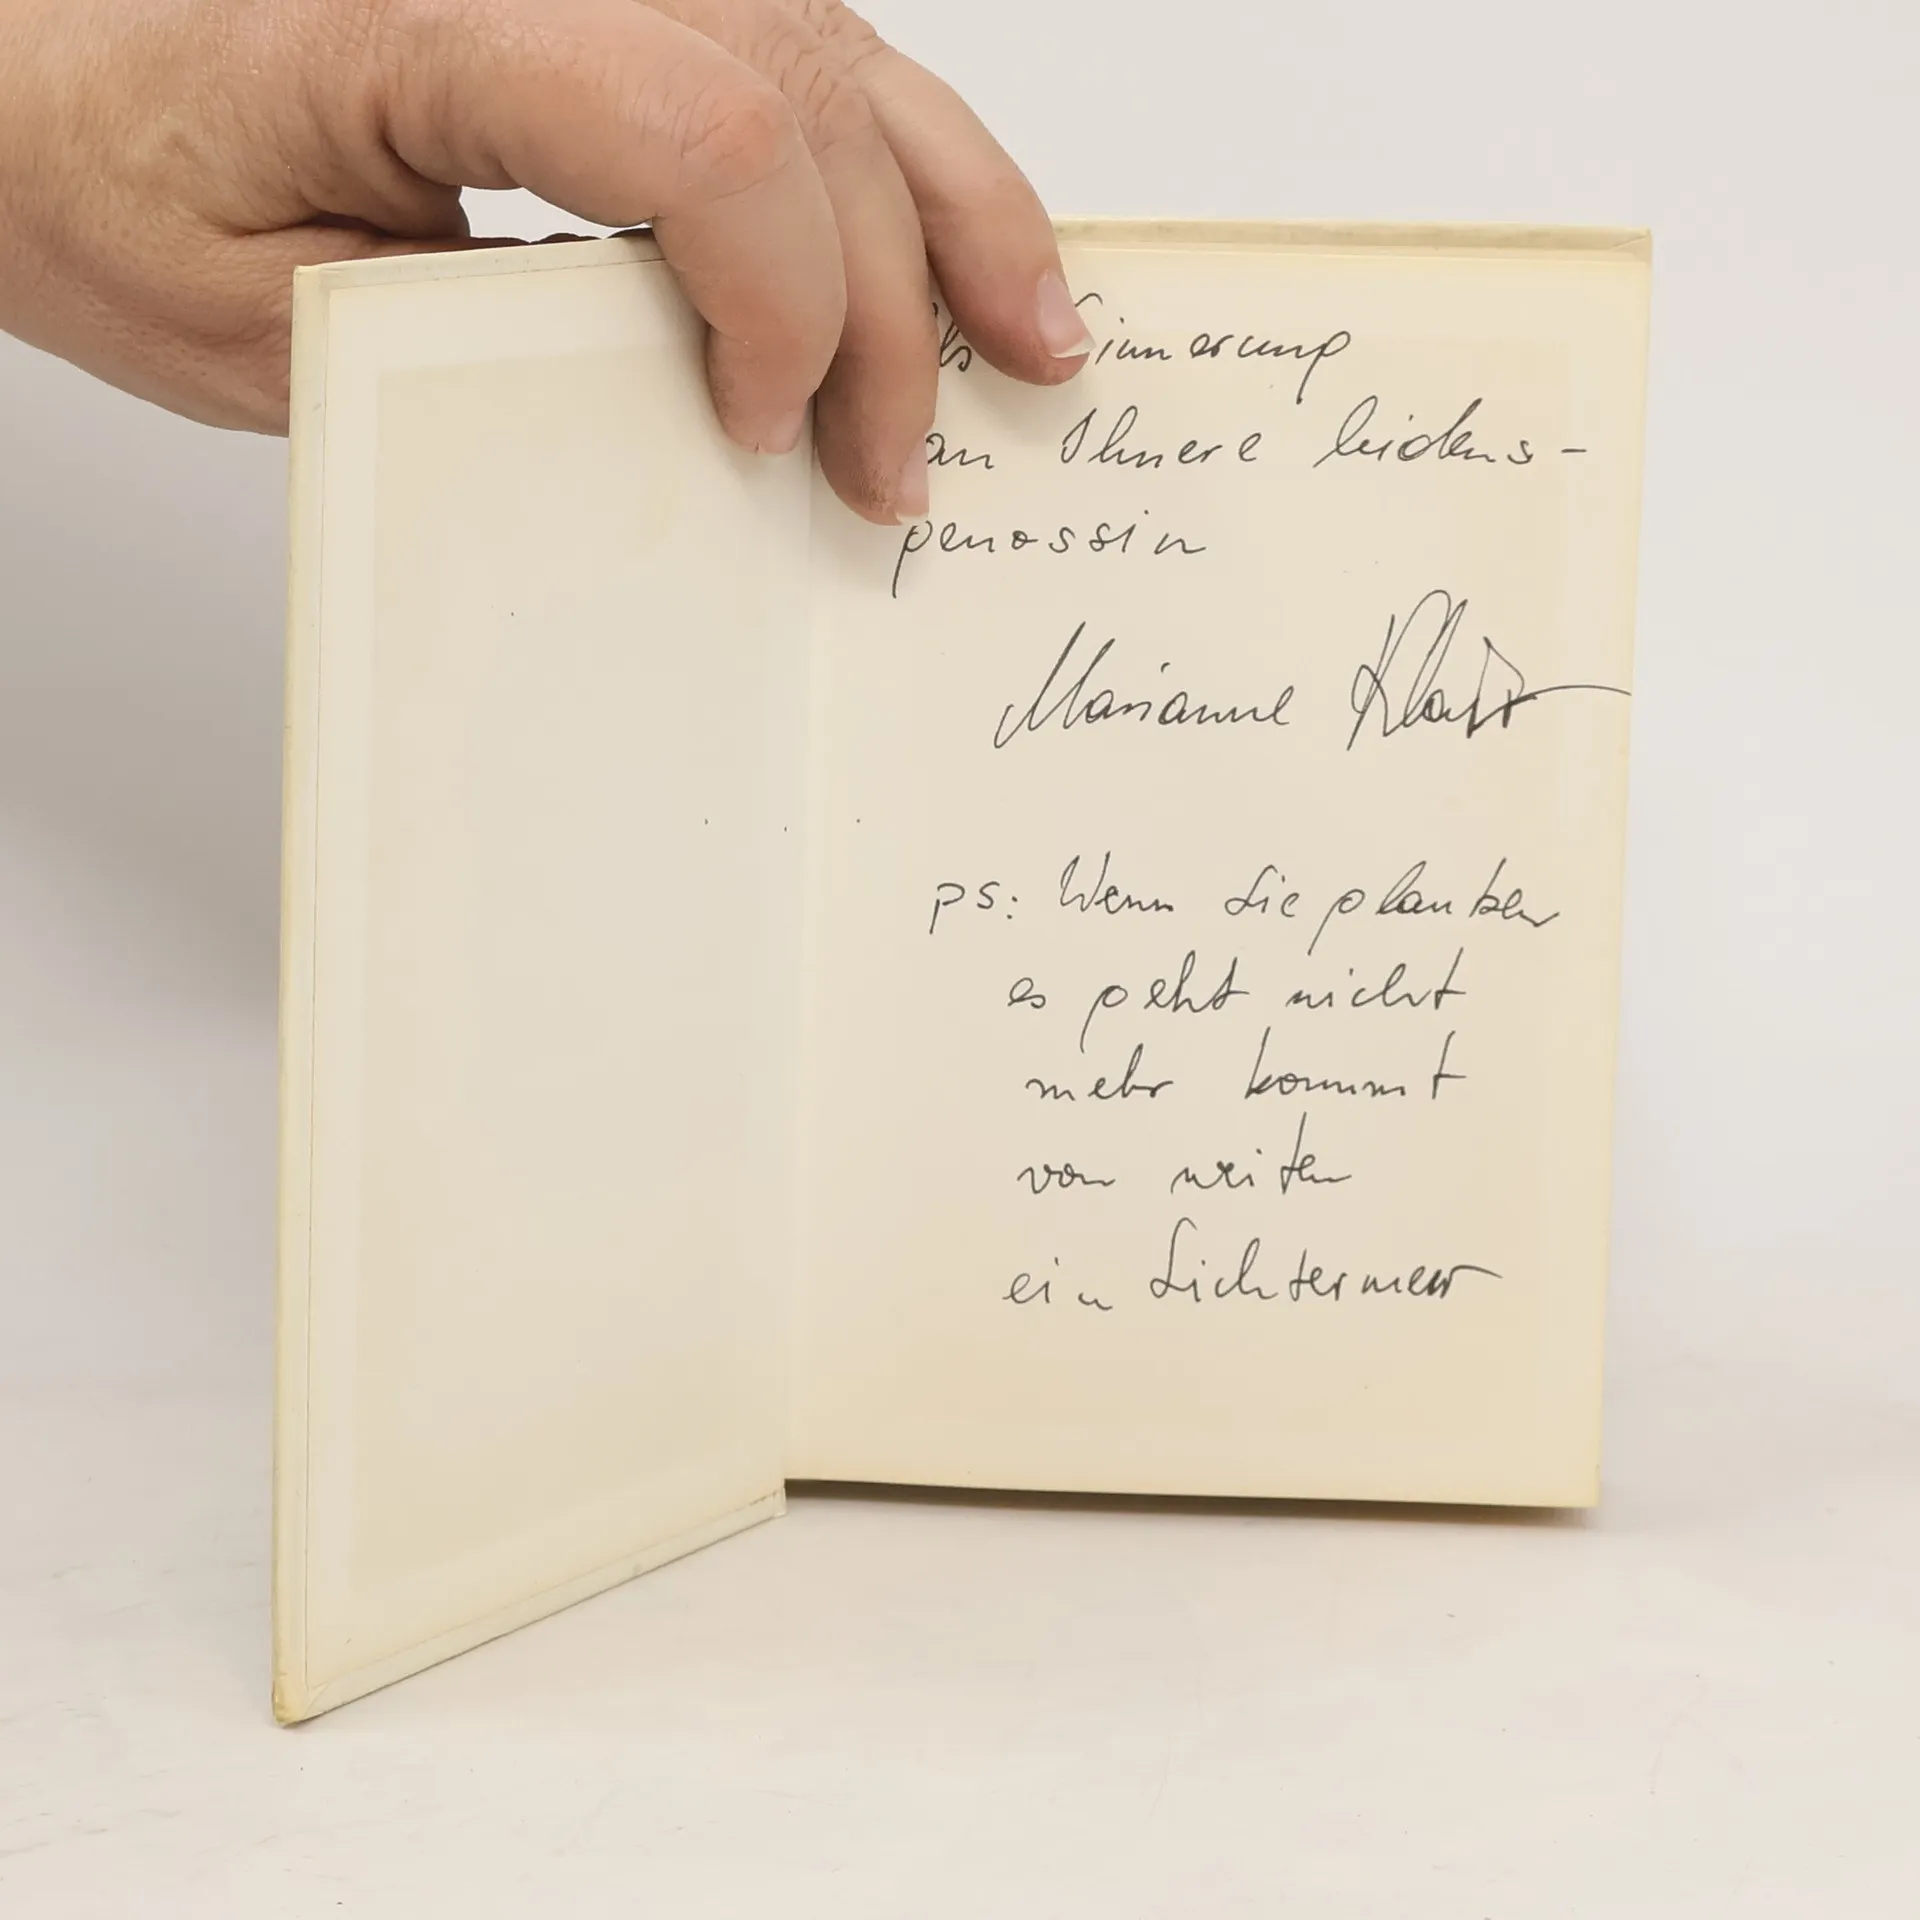 als Erinnerung
an Ihnere leidens-
genossin
Marianne
ps: Wenn Sie glauben
es geht nicht
mehr kommt
von weiten
ein Lichtermeer